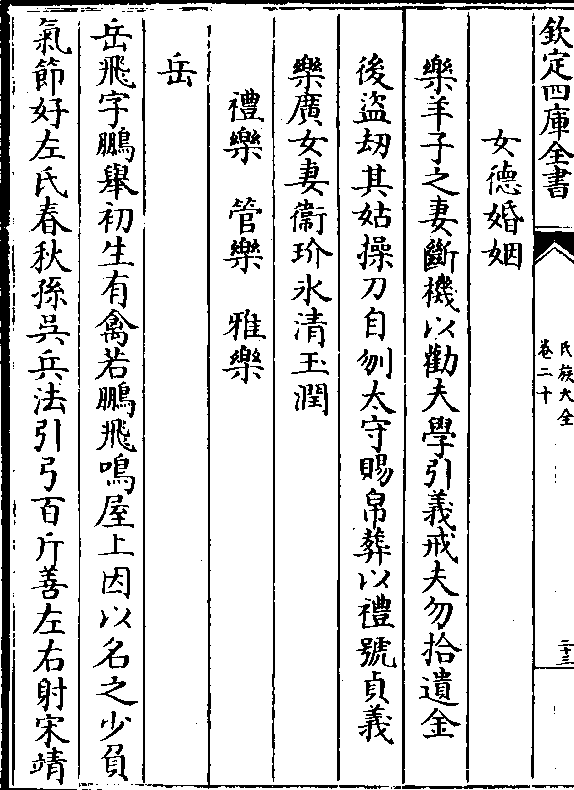 欽定四庫全書
氏族大全
卷二十
二十三
女德婚姻
樂羊子之妻斷機以勸夫學引義戒夫勿拾遺金
後盜刼其姑操刀自刎太守賜帛葬以禮號貞義
樂廣女妻衞玠氷清玉潤
禮樂　管樂　雅樂
岳
岳飛字鵬舉初生有禽若鵬飛鳴屋上因以名之少負
氣節好左氏春秋孫吳兵法引弓百斤善左右射宋靖